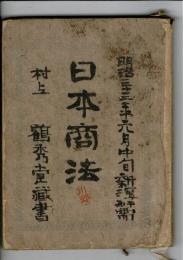 明治三十三年六月中旬新調
日本商法
村上
鶴秀堂蔵書